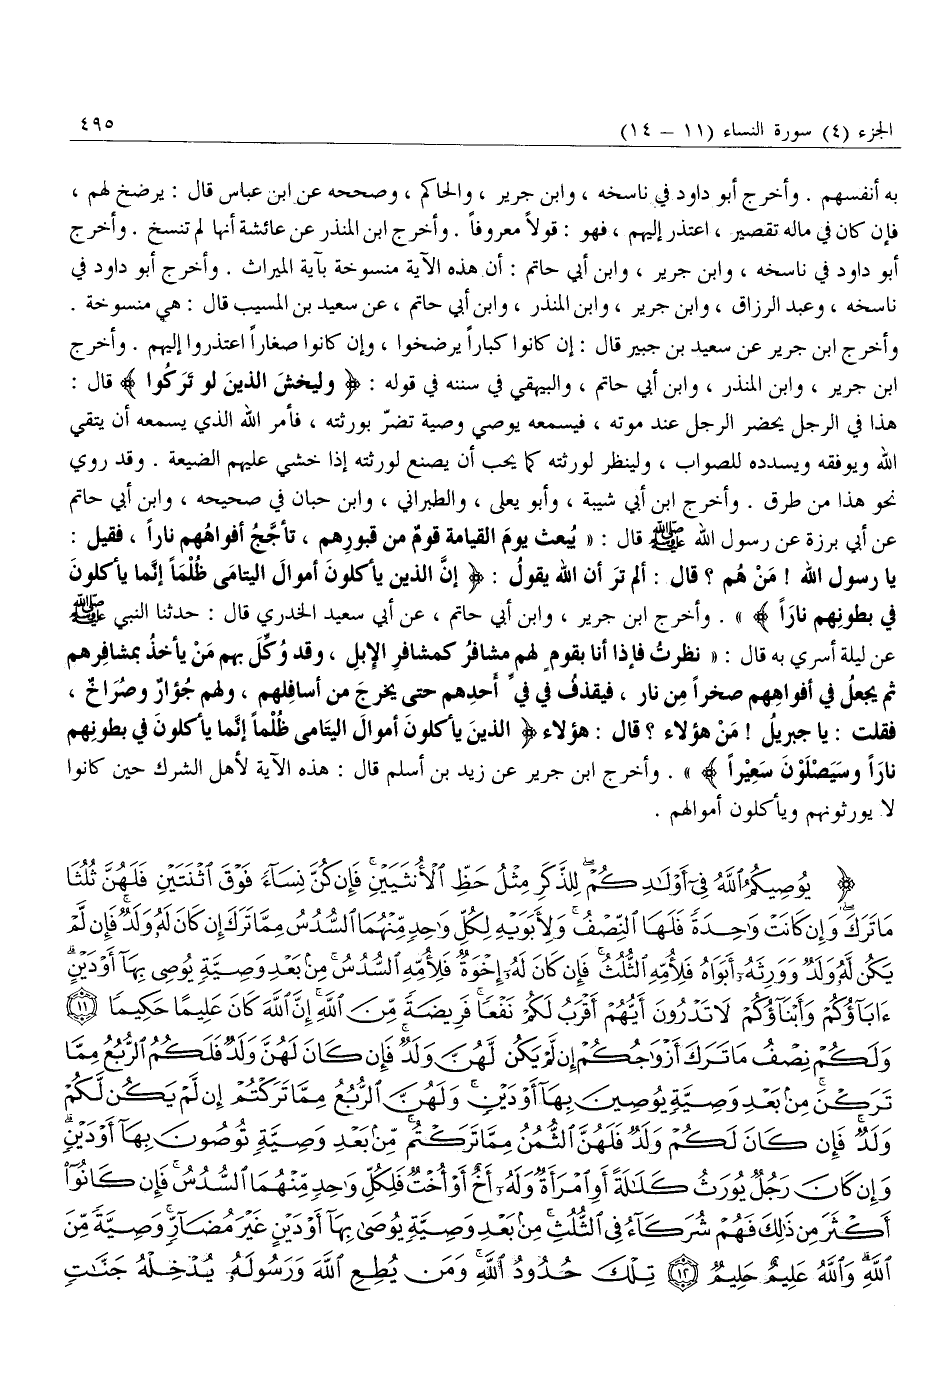 الجزء (٤) سورة النساء (١١ – ١٤) ٤٩٥
به أنفسهم . وأخرج أبو داود في ناسخه ، وابن جرير ، والحاكم ، وصححه عن ابن عباس قال : يرضخ لهم ،
فإن كان في ماله تقصير ، اعتذر إليهم ، فهو : قولاً معروفاً . وأخرج ابن المنذر عن عائشة أنها لم تنسخ . وأخرج
أبو داود في ناسخه ، وابن جرير ، وابن أبي حاتم : أن هذه الآية منسوخة بآية الميراث . وأخرج أبو داود في
ناسخه ، وعبد الرزاق ، وابن جرير ، وابن المنذر ، وابن أبي حاتم ، عن سعيد بن المسيب قال : هي منسوخة .
وأخرج ابن جرير عن سعيد بن جبير قال : إن كانوا كباراً يرضخوا ، وإن كانوا صغاراً اعتذروا إليهم . وأخرج
ابن جرير ، وابن المنذر ، وابن أبي حاتم ، والبيهقي في سننه في قوله : ﴿ وليخشَ الذينَ لو تَركُوا ﴾ قال :
هذا في الرجل يحضر الرجل عند موته ، فيسمعه يوصي وصية تضرّ بورثته ، فأمر الله الذي يسمعه أن يتقي
الله ويوفقه ويسدده للصواب ، ولينظر لورثته كما يحب أن يصنع لورثته إذا خشي عليهم الضيعة . وقد روي
نحو هذا من طرق . وأخرج ابن أبي شيبة ، وأبو يعلى ، والطبراني ، وابن حبان في صحيحه ، وابن أبي حاتم
عن أبي برزة عن رسول الله ﷺ قال : « يُبعث يومَ القيامة قومٌ من قبورِهم ، تأجَّجُ أفواهُهم ناراً ، فقيل :
يا رسول الله ! مَنْ هُم ؟ قال : ألم ترَ أن الله يقولُ : ﴿ إنَّ الذين يأكلونَ أموالَ اليتامَى ظُلْمَاً إنَّما يأكلونَ
في بطونِهم نارَاً ﴾ » . وأخرج ابن جرير ، وابن أبي حاتم ، عن أبي سعيد الخدري قال : حدثنا النبي ﷺ
عن ليلة أسري به قال : « نظرتُ فإذا أنا بقومٍ لهم مشافرُ كمشافرِ الإبلِ ، وقد وُكِّلَ بهم مَنْ يأخذُ بمشافرِهم
ثم يجعلُ في أفواهِهم صخراً مِن نار ، فيقذفُ في فيِّ أَحدِهم حتى يخرجَ من أسافلِهم ، ولهم جُؤارٌ وصُرَاخٌ ،
فقلت : يا جبريلُ ! مَنْ هؤلاء ؟ قال : هؤلاء ﴿ الذينَ يأكلونَ أموالَ اليتامَى ظُلْماً إنَّما يأكلونَ في بطونِهم
نارَاً وسَيَصْلَوْنَ سَعِيْراً ﴾ » . وأخرج ابن جرير عن زيد بن أسلم قال : هذه الآية لأهل الشرك حين كانوا
لا يورثونهم ويأكلون أموالهم .
﴿ يُوصِيكُمُ ٱللَّهُ فِىٓ أَوْلَٰدِكُمْ ۖ لِلذَّكَرِ مِثْلُ حَظِّ ٱلْأُنثَيَيْنِ ۚ فَإِن كُنَّ نِسَآءً فَوْقَ ٱثْنَتَيْنِ فَلَهُنَّ ثُلُثَا
مَا تَرَكَ ۖ وَإِن كَانَتْ وَٰحِدَةً فَلَهَا ٱلنِّصْفُ ۚ وَلِأَبَوَيْهِ لِكُلِّ وَٰحِدٍ مِّنْهُمَا ٱلسُّدُسُ مِمَّا تَرَكَ إِن كَانَ لَهُۥ وَلَدٌ ۚ فَإِن لَّمْ
يَكُن لَّهُۥ وَلَدٌ وَوَرِثَهُۥٓ أَبَوَاهُ فَلِأُمِّهِ ٱلثُّلُثُ ۚ فَإِن كَانَ لَهُۥٓ إِخْوَةٌ فَلِأُمِّهِ ٱلسُّدُسُ ۚ مِنۢ بَعْدِ وَصِيَّةٍ يُوصِى بِهَآ أَوْ دَيْنٍ ۗ
ءَابَآؤُكُمْ وَأَبْنَآؤُكُمْ لَا تَدْرُونَ أَيُّهُمْ أَقْرَبُ لَكُمْ نَفْعًا ۚ فَرِيضَةً مِّنَ ٱللَّهِ ۗ إِنَّ ٱللَّهَ كَانَ عَلِيمًا حَكِيمًا ١١
وَلَكُمْ نِصْفُ مَا تَرَكَ أَزْوَٰجُكُمْ إِن لَّمْ يَكُن لَّهُنَّ وَلَدٌ ۚ فَإِن كَانَ لَهُنَّ وَلَدٌ فَلَكُمُ ٱلرُّبُعُ مِمَّا
تَرَكْنَ ۚ مِنۢ بَعْدِ وَصِيَّةٍ يُوصِينَ بِهَآ أَوْ دَيْنٍ ۚ وَلَهُنَّ ٱلرُّبُعُ مِمَّا تَرَكْتُمْ إِن لَّمْ يَكُن لَّكُمْ
وَلَدٌ ۚ فَإِن كَانَ لَكُمْ وَلَدٌ فَلَهُنَّ ٱلثُّمُنُ مِمَّا تَرَكْتُم ۚ مِّنۢ بَعْدِ وَصِيَّةٍ تُوصُونَ بِهَآ أَوْ دَيْنٍ ۗ
وَإِن كَانَ رَجُلٌ يُورَثُ كَلَٰلَةً أَوِ ٱمْرَأَةٌ وَلَهُۥٓ أَخٌ أَوْ أُخْتٌ فَلِكُلِّ وَٰحِدٍ مِّنْهُمَا ٱلسُّدُسُ ۚ فَإِن كَانُوٓا۟
أَكْثَرَ مِن ذَٰلِكَ فَهُمْ شُرَكَآءُ فِى ٱلثُّلُثِ ۚ مِنۢ بَعْدِ وَصِيَّةٍ يُوصَىٰ بِهَآ أَوْ دَيْنٍ غَيْرَ مُضَآرٍّ ۚ وَصِيَّةً مِّنَ
ٱللَّهِ ۗ وَٱللَّهُ عَلِيمٌ حَلِيمٌ ١٢ تِلْكَ حُدُودُ ٱللَّهِ ۚ وَمَن يُطِعِ ٱللَّهَ وَرَسُولَهُۥ يُدْخِلْهُ جَنَّٰتٍ